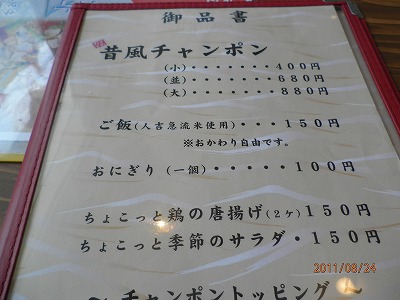 御品書
昔風チャンポン
(小)・・・・・・・400円
(並)・・・・・・・680円
(大)・・・・・・・880円
ご飯(人吉急流米使用)・・・150円
※おかわり自由です。
おにぎり(一個)・・・・・・100円
ちょこっと鶏の唐揚げ(2ケ)150円
ちょこっと季節のサラダ・150円
～チャンポントッピング～
2011/08/24